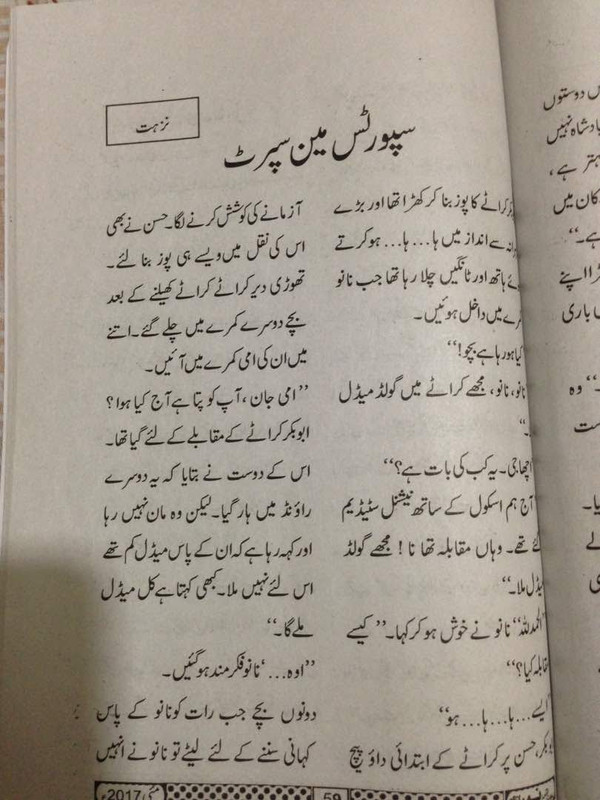 نزہت
سپورٹس مین سپرٹ
کراٹے کا پوز بنا کر کھڑا تھا اور بڑے
سے انداز میں ہا... ہا... ہو کرتے
ہاتھ اور ٹانگیں چلا رہا تھا جب نانو
میں داخل ہوئیں۔
کیا ہو رہا ہے بچو!‘‘
نانو، نانو، مجھے کراٹے میں گولڈ میڈل
۔‘‘
اچھا جی۔ یہ کب کی بات ہے؟‘‘
آج ہم اسکول کے ساتھ نیشنل سٹیڈیم
گئے تھے۔ وہاں مقابلہ تھا نا! مجھے گولڈ
میڈل ملا۔‘‘
’’الحمدللہ‘‘ نانو نے خوش ہو کر کہا۔ ’’کیسے
مقابلہ کیا؟‘‘
’’ایسے... ہا... ہا... ہو‘‘
ابوبکر، حسن پر کراٹے کے ابتدائی داؤ پیچ
آزمانے کی کوشش کرنے لگا۔ حسن نے بھی
اس کی نقل میں ویسے ہی پوز بنا لئے۔
تھوڑی دیر کراٹے کراٹے کھیلنے کے بعد
بچے دوسرے کمرے میں چلے گئے۔ اتنے
میں ان کی امی کمرے میں آئیں۔
’’امی جان، آپ کو پتا ہے آج کیا ہوا؟
ابوبکر کراٹے کے مقابلے کے لئے گیا تھا۔
اس کے دوست نے بتایا کہ یہ دوسرے
راؤنڈ میں ہار گیا۔ لیکن وہ مان نہیں رہا
اور کہہ رہا ہے کہ ان کے پاس میڈل کم تھے
اس لئے نہیں ملا۔ کبھی کہتا ہے کل میڈل
ملے گا۔‘‘
’’اوہ...‘‘ نانو فکرمند ہو گئیں۔
دونوں بچے جب رات کو نانو کے پاس
کہانی سننے کے لئے لیٹے تو نانو نے انہیں
59
مئی 2017ء
دوستوں
بادشاہ نہیں
بہتر ہے،
میں
ہے۔‘‘
اپنے
باری
۔‘‘ وہ